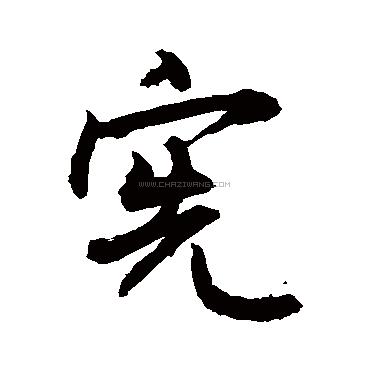 宪
WWW.CHAZIWANG.COM